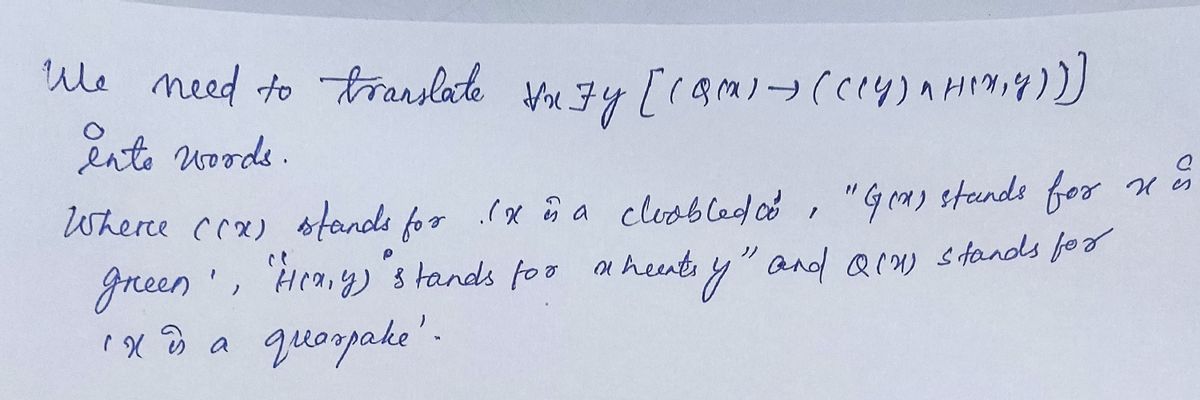 We need to translate ∀x∃y[(Q(x)→(C(y)∧H(x,y))]
into words.
Where C(x) stands for '(x is a , "G(x) stands for x is
green', "H(x,y)" stands for x hunts y" and Q(x) stands for
'x is a quarpake'.